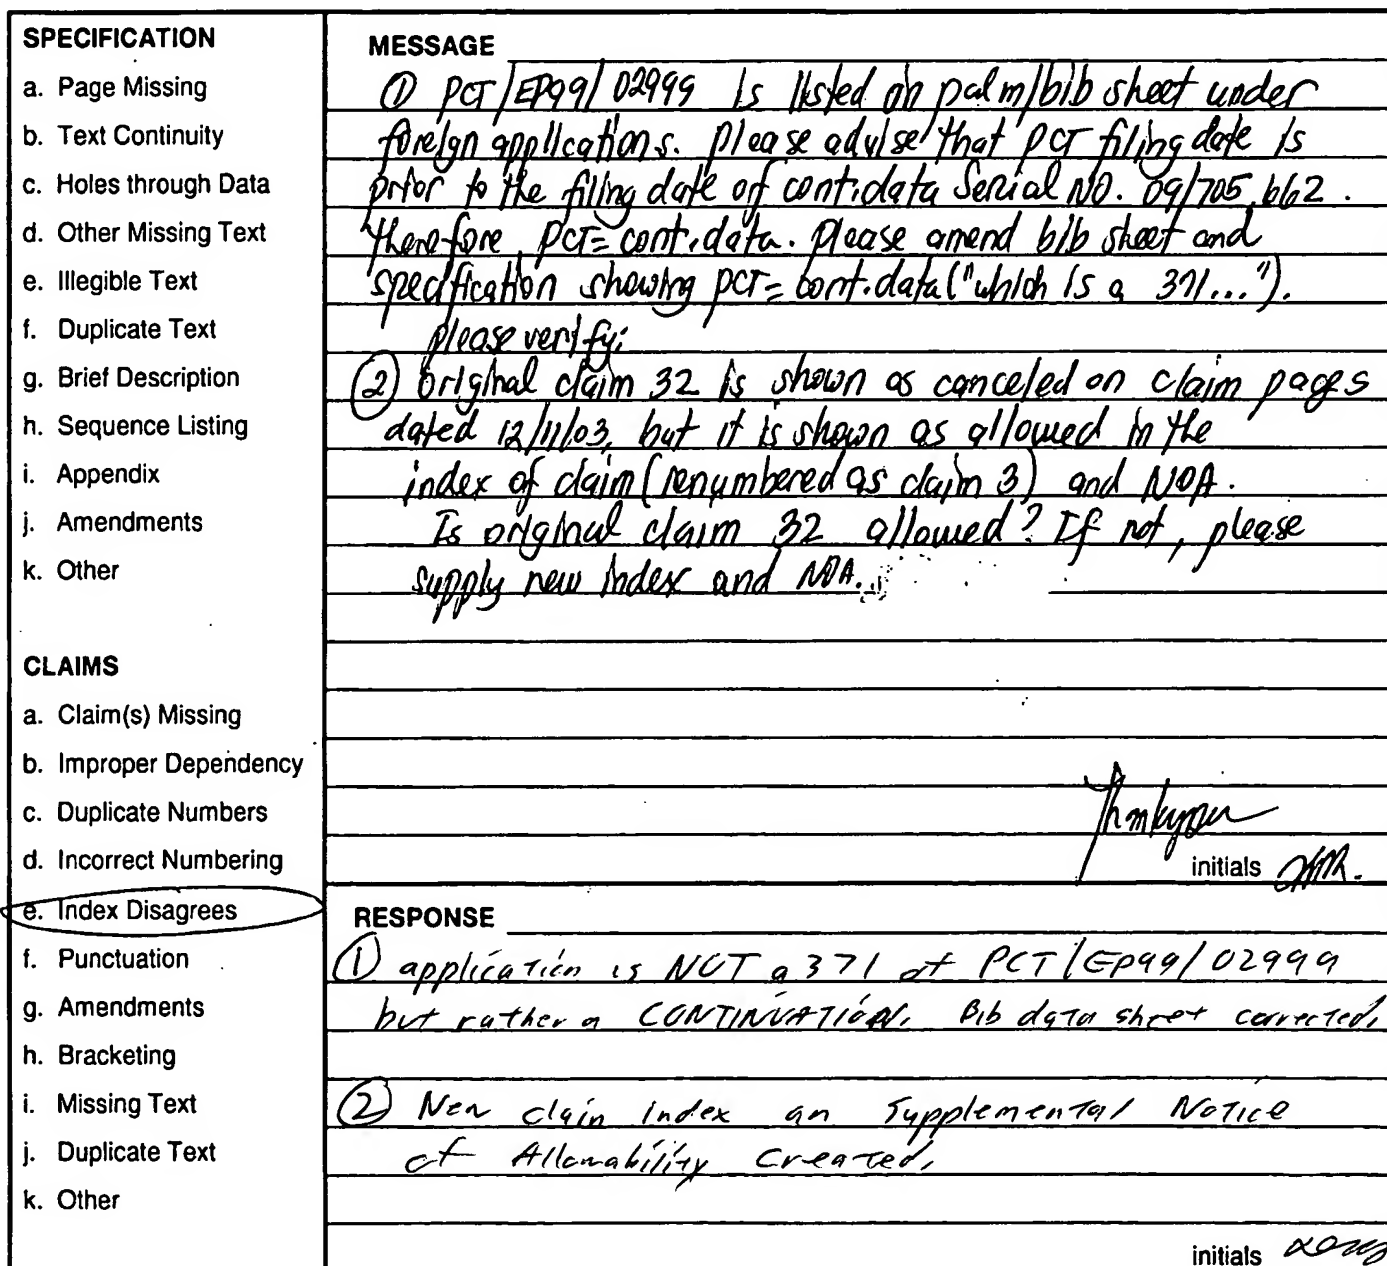 SPECIFICATION
a. Page Missing
b. Text Continuity
c. Holes through Data
d. Other Missing Text
e. Illegible Text
f. Duplicate Text
g. Brief Description
h. Sequence Listing
i. Appendix
j. Amendments
k. Other
CLAIMS
a. Claim(s) Missing
b. Improper Dependency
c. Duplicate Numbers
d. Incorrect Numbering
e. Index Disagrees
f. Punctuation
g. Amendments
h. Bracketing
i. Missing Text
j. Duplicate Text
k. Other
MESSAGE
① PCT/EP99/02999 is listed on palm/bib sheet under
foreign applications. please advise that PCT filing date is
prior to the filing date of cont.data Serial NO. 09/705,662.
therefore, PCT= cont.data. Please amend bib sheet and
specification showing PCT= cont.data ("which is a 371...").
please verify.
② original claim 32 is shown as canceled on claim pages
dated 12/11/03, but it is shown as allowed in the
index of claim (renumbered as claim 3) and NOA.
Is original claim 32 allowed? If not, please
supply new index and NOA.
Thank you
initials
RESPONSE
① application is NOT a 371 of PCT/EP99/02999
but rather a CONTINUATION. Bib data sheet corrected.
② New claim index an Supplemental Notice
of Allowability Created.
initials